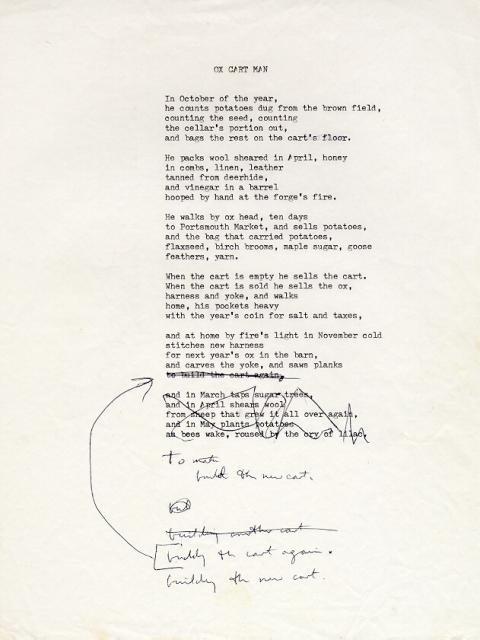 OX CART MAN
In October of the year,
he counts potatoes dug from the brown field,
counting the seed, counting
the cellar's portion out,
and bags the rest on the cart's floor.
He packs wool sheared in April, honey
in combs, linen, leather
tanned from deerhide,
and vinegar in a barrel
hooped by hand at the forge's fire.
He walks by ox head, ten days
to Portsmouth Market, and sells potatoes,
and the bag that carried potatoes,
flaxseed, birch brooms, maple sugar, goose
feathers, yarn.
When the cart is empty he sells the cart.
When the cart is sold he sells the ox,
harness and yoke, and walks
home, his pockets heavy
with the year's coin for salt and taxes,
and at home by fire's light in November cold
stitches new harness
for next year's ox in the barn,
and carves the yoke, and saws planks
to build the cart again,
and in March taps sugar trees,
and in April shears wool
from sheep that grew it all over again,
and in May plants potatoes
as bees wake, roused by the cry of lilac.
To make
build the new cart.
building another cart
building the cart again.
building the new cart.